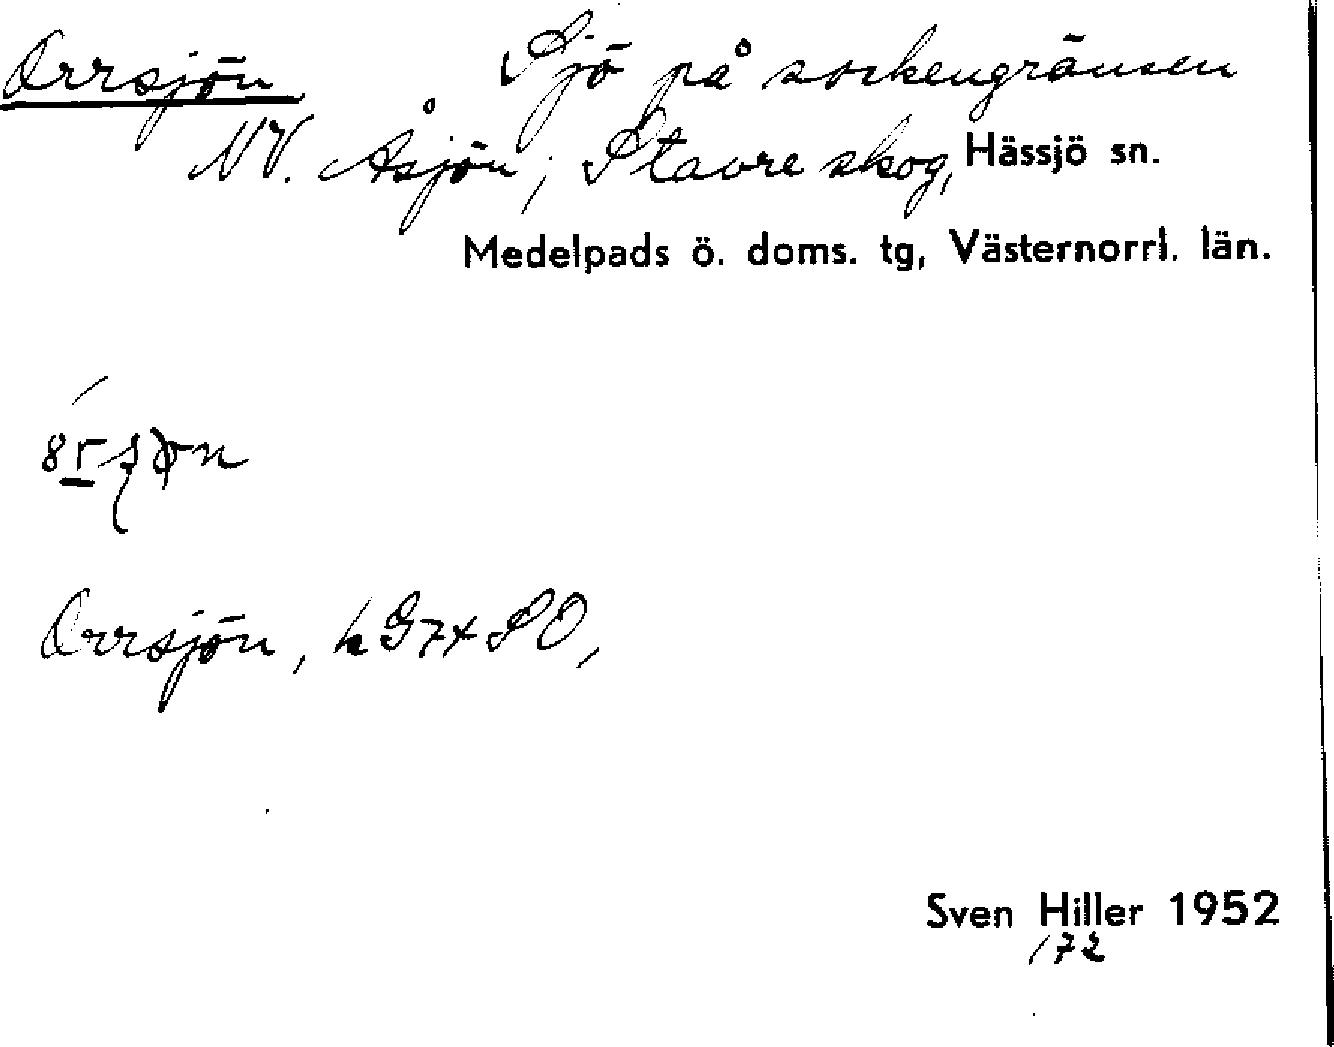 Orrsjön Sjö på sockengränsen
NV. Åsjön, Stavre skog, Hässjö sn.
Medelpads ö. doms. tg, Västernorrl. län.
Orrsjön, k G7x SO,
Sven Hiller 1952
172